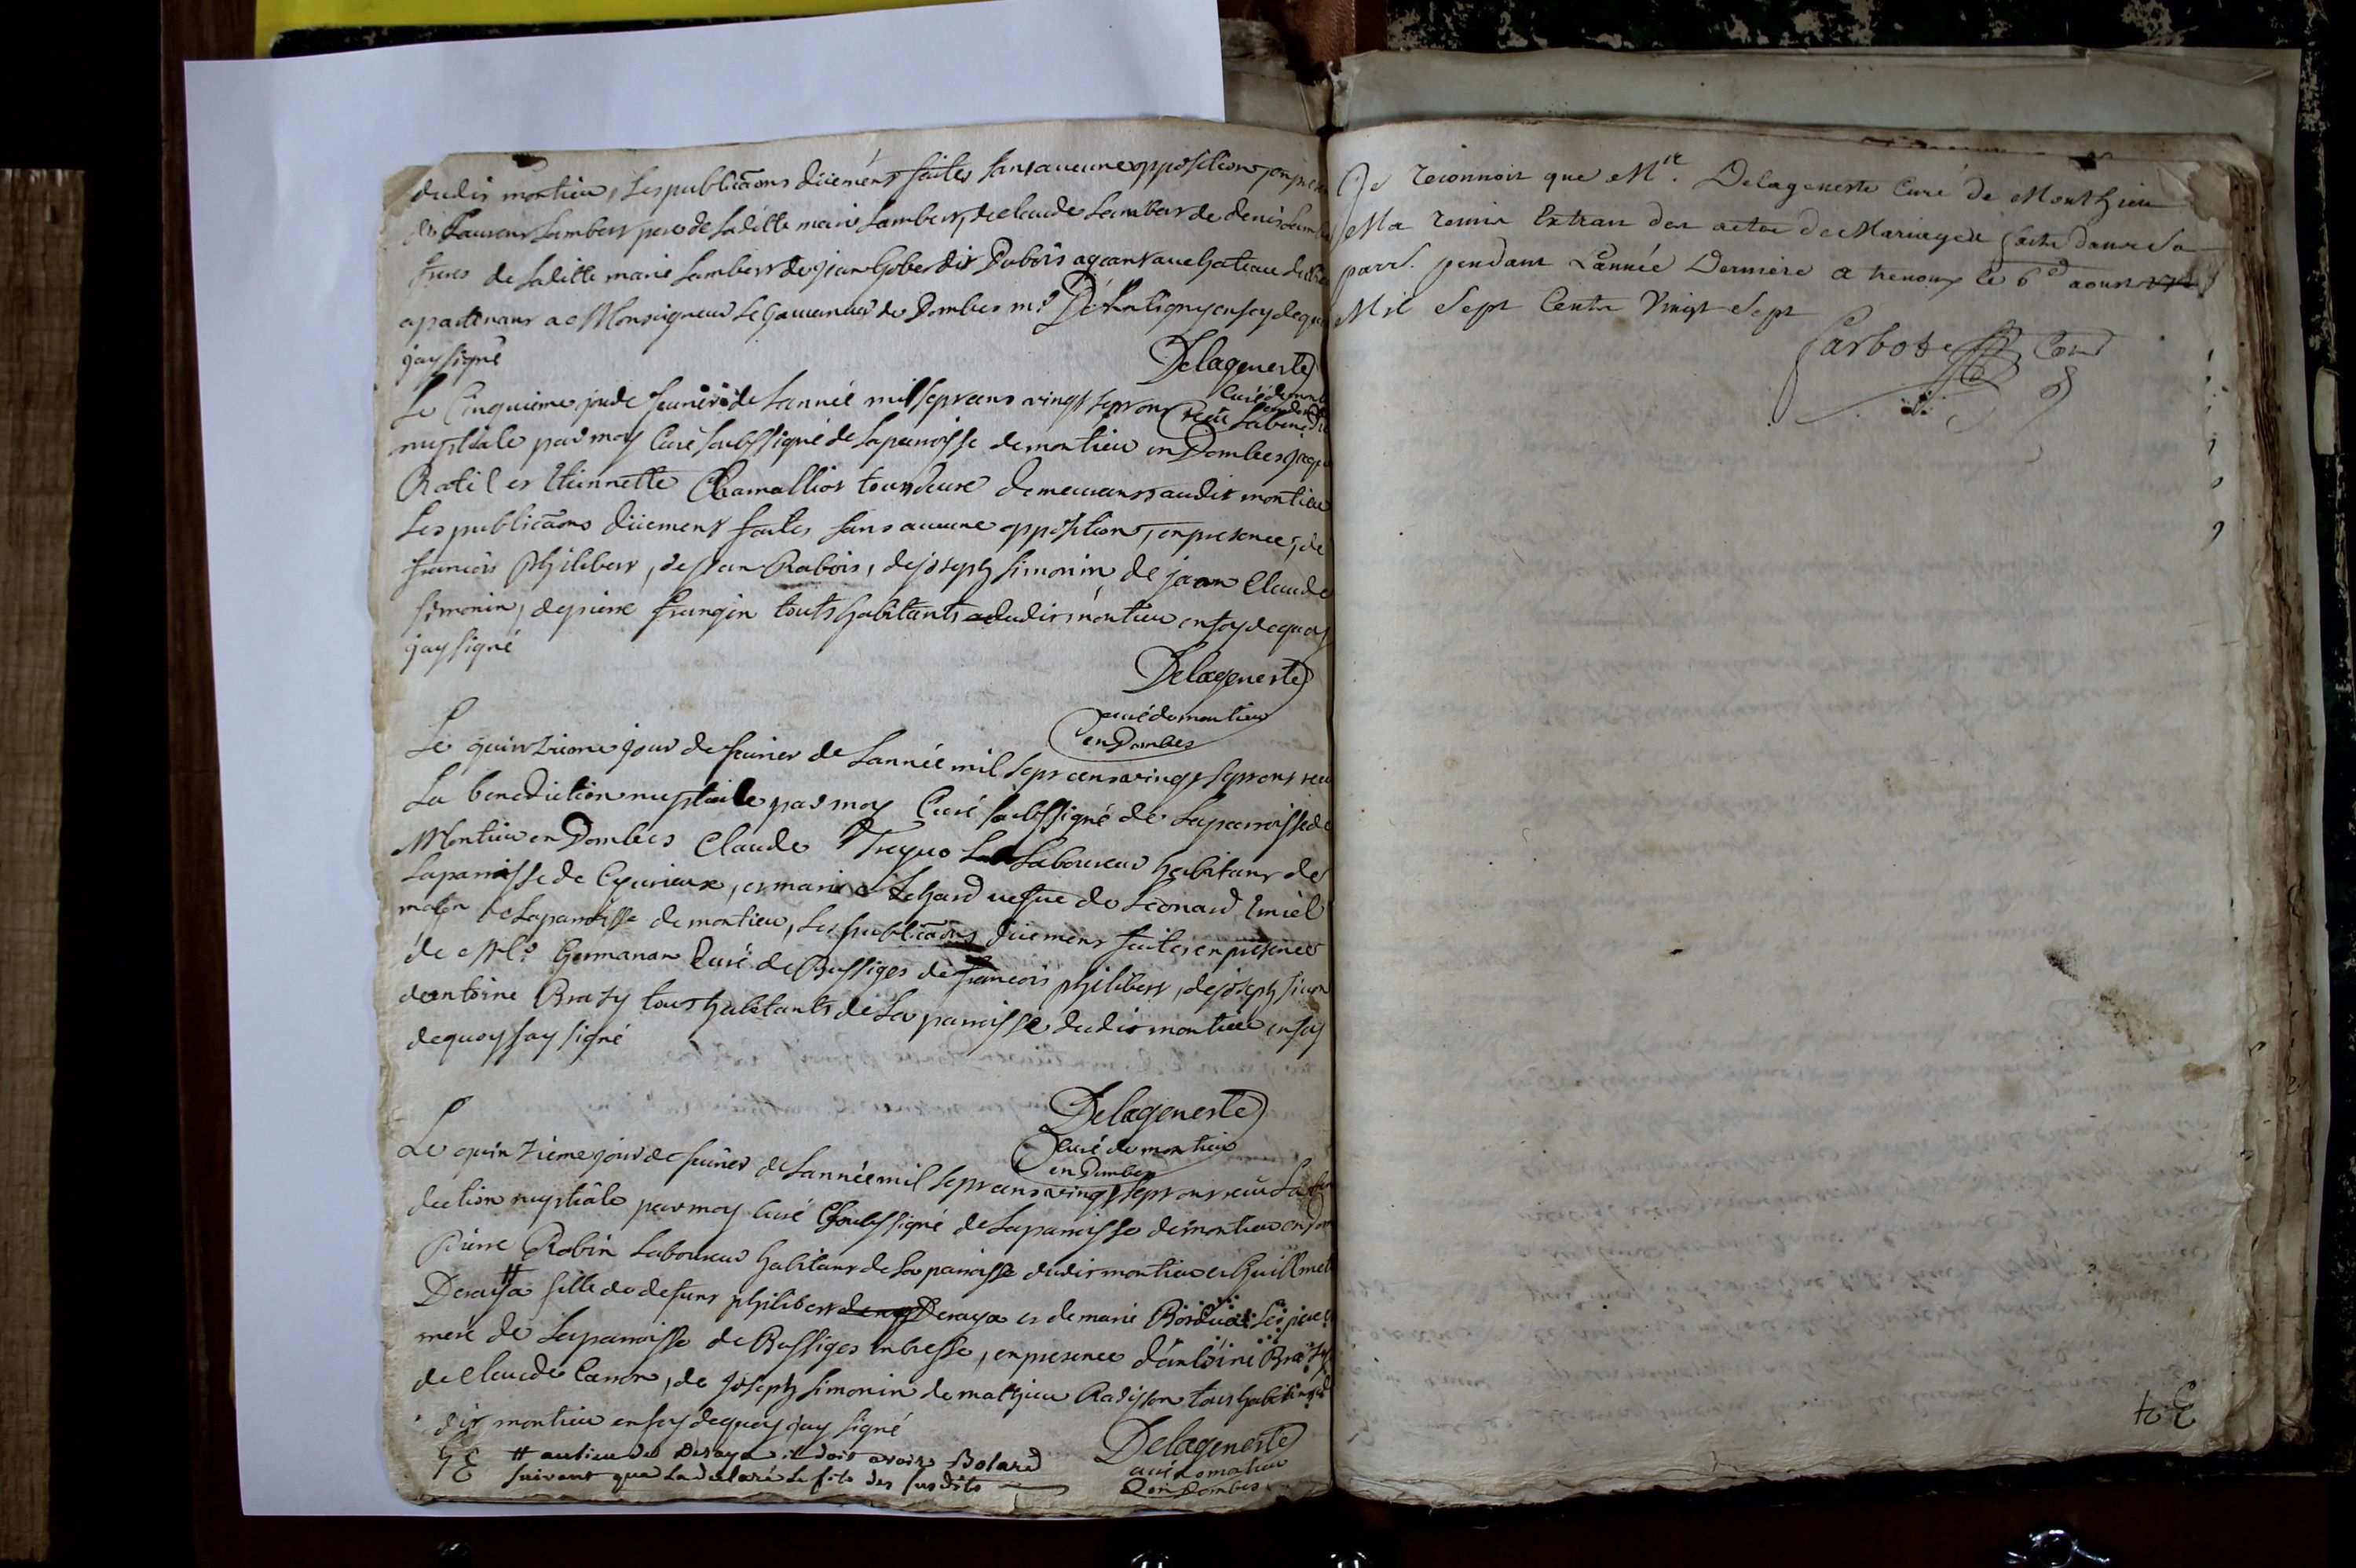 dudit montieu, Les publicãons düement faites sans aucune opposition, en pre
de Laurens Lambert pere de Laditte marie Lambert, de claude Lambert de denis Lamb
freres de Laditte marie Lambert de jean Gobe dit Dubois agent au chateau
apartenant a Monseigneur Le Gouuerneur de Dombes mr. De en foy de quoy
jay signé
Delageneste
Curé de mont
en dombes
Le Cinquieme jour de feurier de Lannée mil sept cens vingt sept ont reçu La bene
nuptiale par moy Curé soubssigné de La paroisse de montieu en Dombes
Ratil et Etiennette Chamallion tous deux demeurants audit montieu
Les publicãons düement faites sans aucune opposition, en presence, de
francois philibert, de jean Rabois, de joseph simonin de jean Claude
simonin, de pierre frangin touts habitants dudit montieu en foy de quoy
jay signé
Delageneste
curé de montieu
en Dombes
Le quinzieme jour de feurier de Lannée mil sept cens vingt sept ont receu
La benediction nuptiale par moy Curé soubssigné de La paroisse de
Montieu en Dombes Claude Laboureur habitant de
La paroisse de Cyurieux, et marie Lehard uefue de Leonard Emiel
maçon de La paroisse de montieu, Les publicãons düement faites en presence
de Mr. Germanan Curé de Bussiges de francois philibert, de joseph simon
dantoine Brazy tous habitants de La paroisse dudit montieu en foy
de quoy jay signé
Delageneste
curé de montieu
en Dombes
Le quinzieme jour de feurier de Lannée mil sept cens vingt sept ont receu La bene
diction nuptiale par moy Curé soubssigné de La paroisse de montieu en Dom
Pierre Robin Laboureur habitant de La paroisse dudit montieu et Guillmet
Deraya fille de defunt philibert Deraya et de marie ses pere et
mere de La paroisse de Bussiges en bresse, en presence d'antoine Brazy
de Claude Canon, de joseph simonin de mathieu Radisson tous habitants du
dit montieu en foy de quoy jay signé
Delageneste
curé de montieu
en Dombes
# au lieu de Deraya il doit avoir Bolard
suivant que La declaré Le fils des susdits
Je reconnoit que Mre. Delageneste Curé de Monthieu
Ma remis Extrait des actes de Mariages faits dans sa
parr. pendant L'année Derniere a trevoux le 6e aoust
Mil Sept Cents Vingt Sept